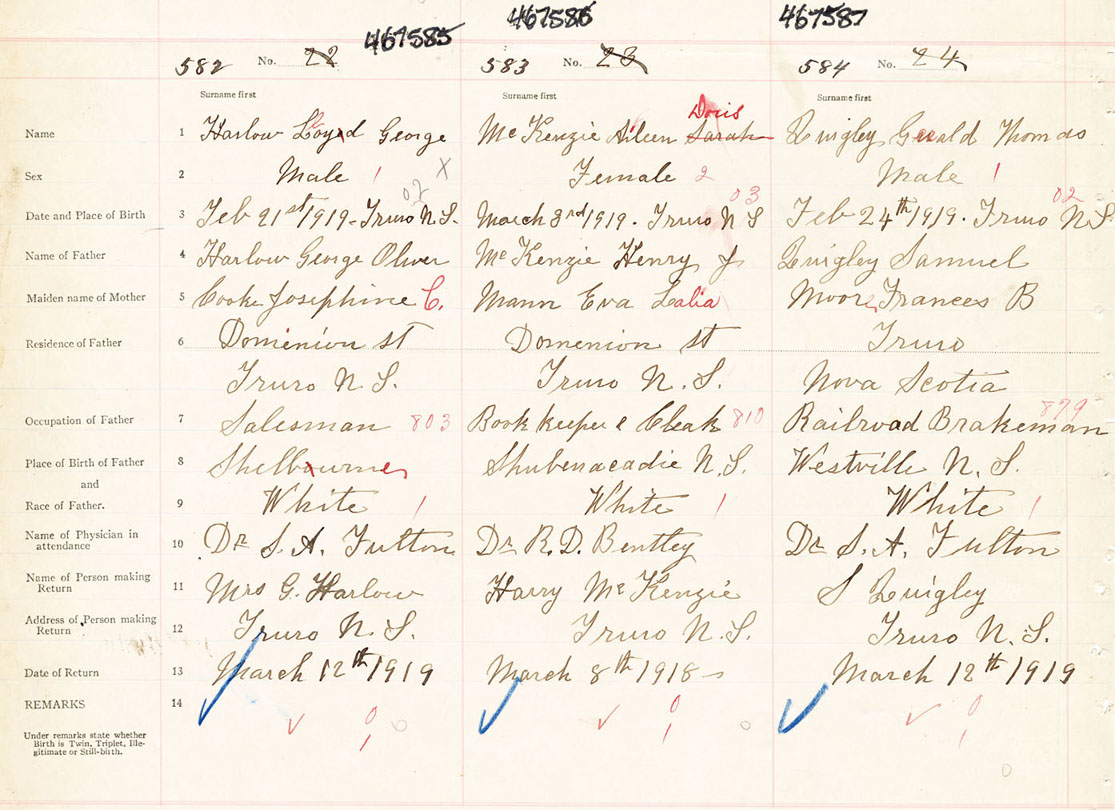 467585 467586 467587
582 No. 22 583 No. 23 584 No. 24
Surname first Surname first Surname first
Doris
Name 1 Harlow Lloyd George McKenzie Aileen Sarah Quigley Gerald Thomas
Sex 2 Male 1 X Female 2 Male 1
02 03 02
Date and Place of Birth 3 Feb 21st 1919 - Truro N.S. March 3rd 1919. Truro N S Feb 24th 1919. Truro N.S.
Name of Father 4 Harlow George Oliver McKenzie Henry J Quigley Samuel
Maiden name of Mother 5 Cooke Josephine C. Mann Eva Lalia Moore Frances B
Residence of Father 6 Dominion st Domenion st Truro
Truro N.S. Truro N.S. Nova Scotia
Occupation of Father 7 Salesman 803 Book keeper & Cleak 810 Railroad Brakeman 879
Place of Birth of Father 8 Shelburne Shubenacadie N.S. Westville N.S.
and
Race of Father. 9 White 1 White 1 White 1
Name of Physician in
attendance 10 Dr S. A. Fulton Dr R. D. Bentley Dr S. A. Fulton
Name of Person making
Return 11 Mrs G. Harlow Harry McKenzie S Quigley
Address of Person making
Return 12 Truro N.S. Truro N.S. Truro N.S.
Date of Return 13 March 12th 1919 March 8th 1918 - March 12th 1919
REMARKS 14
0 0 0
1 0 1 0 1
Under remarks state whether
Birth is Twin, Triplet, Ille-
gitimate or Still-birth.
0